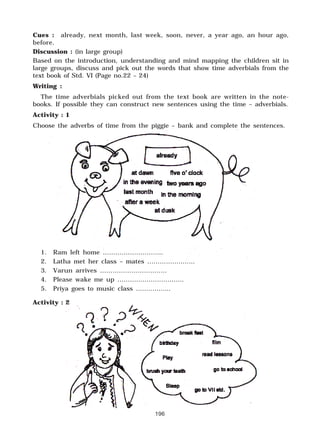 Cues : already, next month, last week, soon, never, a year ago, an hour ago,
before.
Discussion : (in large group)
Based on the introduction, understanding and mind mapping the children sit in
large groups, discuss and pick out the words that show time adverbials from the
text book of Std. VI (Page no.22 – 24)
Writing :
The time adverbials picked out from the text book are written in the note-
books. If possible they can construct new sentences using the time – adverbials.
Activity : 1
Choose the adverbs of time from the piggie – bank and complete the sentences.
already
at dawn five o' clock
in the evening two years ago
last month in the morning
after a week
at dusk
1. Ram left home ............................
2. Latha met her class – mates ......................
3. Varun arrives ...............................
4. Please wake me up ...............................
5. Priya goes to music class ................
Activity : 2
? ? ? WHEN
? ?
break fast
birthday film
Play read lessons
brush your teeth go to school
Sleep go to VII std.
196